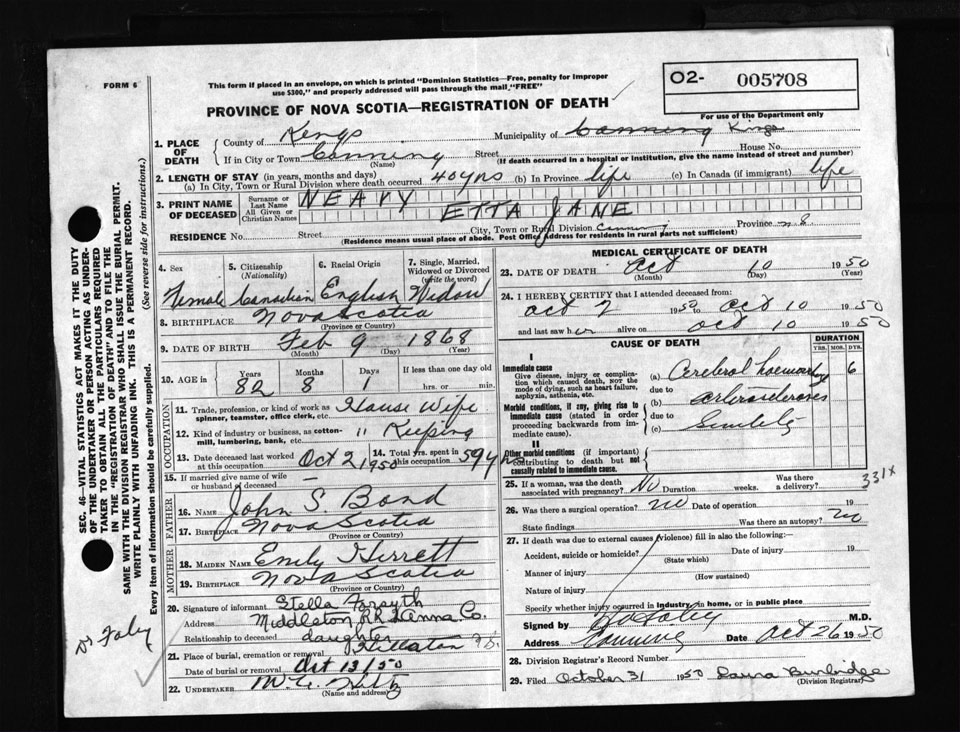 FORM 6
This form if placed in an envelope, on which is printed "Dominion Statistics—Free, penalty for improper
use $300," and properly addressed will pass through the mail "FREE"
PROVINCE OF NOVA SCOTIA—REGISTRATION OF DEATH
O2- 005708
For use of the Department only
1. PLACE OF DEATH { County of Kings Municipality of Canning Kings
If in City or Town Canning (Name) Street House No.
(If death occurred in a hospital or institution, give the name instead of street and number)
2. LENGTH OF STAY (in years, months and days)
(a) In City, Town or Rural Division where death occurred 40 yrs (b) In Province life (c) In Canada (if immigrant) life
3. PRINT NAME OF DECEASED { Surname or Last Name NEARY
All Given or Christian Names ETTA JANE
RESIDENCE No. Street City, Town or Rural Division Canning Province N S
(Residence means usual place of abode. Post Office Address for residents in rural parts not sufficient)
4. Sex Female
5. Citizenship (Nationality) Canadian
6. Racial Origin English
7. Single, Married, Widowed or Divorced (write the word) Widow
8. BIRTHPLACE Nova Scotia
(Province or Country)
9. DATE OF BIRTH Feb 9 1868
(Month) (Day) (Year)
10. AGE in { Years 82 Months 8 Days 1 If less than one day old
hrs. or min.
OCCUPATION
11. Trade, profession, or kind of work as spinner, teamster, office clerk, etc. House Wife
12. Kind of industry or business, as cotton-mill, lumbering, bank, etc. " Keeping
13. Date deceased last worked at this occupation Oct 2 1950
14. Total yrs. spent in this occupation 59 yrs
15. If married give name of wife or husband of deceased —
FATHER
16. NAME John S. Bond
17. BIRTHPLACE Nova Scotia
(Province or Country)
MOTHER
18. MAIDEN NAME Emily
19. BIRTHPLACE Nova Scotia
(Province or Country)
20. Signature of informant Stella Forsyth
Address Middleton RR Co.
Relationship to deceased daughter
21. Place of burial, cremation or removal
Date of burial or removal Oct 13/50
22. UNDERTAKER
(Name and address)
MEDICAL CERTIFICATE OF DEATH
23. DATE OF DEATH Oct 10 1950
(Month) (Day) (Year)
24. I HEREBY CERTIFY that I attended deceased from:
Oct 2 1950 to Oct 10 1950
and last saw her alive on Oct 10 1950
CAUSE OF DEATH
DURATION
YRS. MOS. DYS.
I
Immediate cause
Give disease, injury or complication which caused death, NOT the mode of dying, such as heart failure, asphyxia, asthenia, etc.
(a) Cerebral haemorrhage 6
due to
Morbid conditions, if any, giving rise to immediate cause (stated in order proceeding backwards from immediate cause).
(b) arteriosclerosis
due to
(c) Senility
II
Other morbid conditions (if important) contributing to death but not causally related to immediate cause.
25. If a woman, was the death associated with pregnancy? No Duration weeks. Was there a delivery?
331X
26. Was there a surgical operation? no Date of operation 19
State findings Was there an autopsy? no
27. If death was due to external causes (violence) fill in also the following:—
Accident, suicide or homicide? Date of injury 19
(State which)
Manner of injury
(How sustained)
Nature of injury
Specify whether injury occurred in industry, in home, or in public place
Signed by Foley M.D.
Address Canning Date Oct 26 1950
28. Division Registrar's Record Number
29. Filed October 31 1950 Laura Burbidge
(Division Registrar)
SEC. 46—VITAL STATISTICS ACT MAKES IT THE DUTY
OF THE UNDERTAKER OR PERSON ACTING AS UNDER-
TAKER TO OBTAIN ALL THE PARTICULARS REQUIRED
IN THE "REGISTRATION OF DEATH" AND TO FILE THE
SAME WITH THE DIVISION REGISTRAR WHO SHALL ISSUE THE BURIAL PERMIT.
WRITE PLAINLY WITH UNFADING INK. THIS IS A PERMANENT RECORD.
Every item of information should be carefully supplied.
(See reverse side for instructions.)
Dr Foley